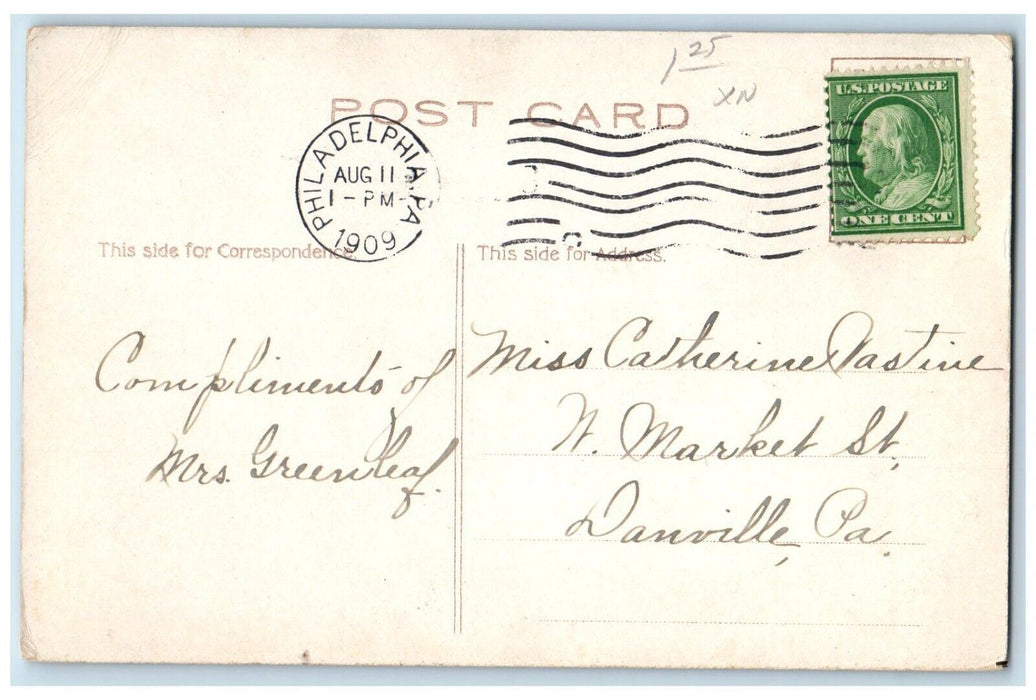 1 25
XN
POST CARD
U.S. POSTAGE
ONE CENT
PHILADELPHIA, PA
AUG 11
1 - PM -
1909
This side for Correspondence.
This side for Address.
Compliments of
Mrs. Greenleaf.
Miss Catherine Vastine
W. Market St.,
Danville, Pa.